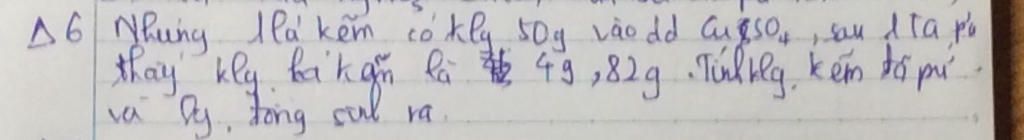 Δ6 Nhúng 1 lá kẽm có klg 50g vào dd CuSO4, sau 1 TG pứ
thấy klg lá kẽm là 49,82g. Tính klg. kẽm đã pứ
và lg. đồng sinh ra.